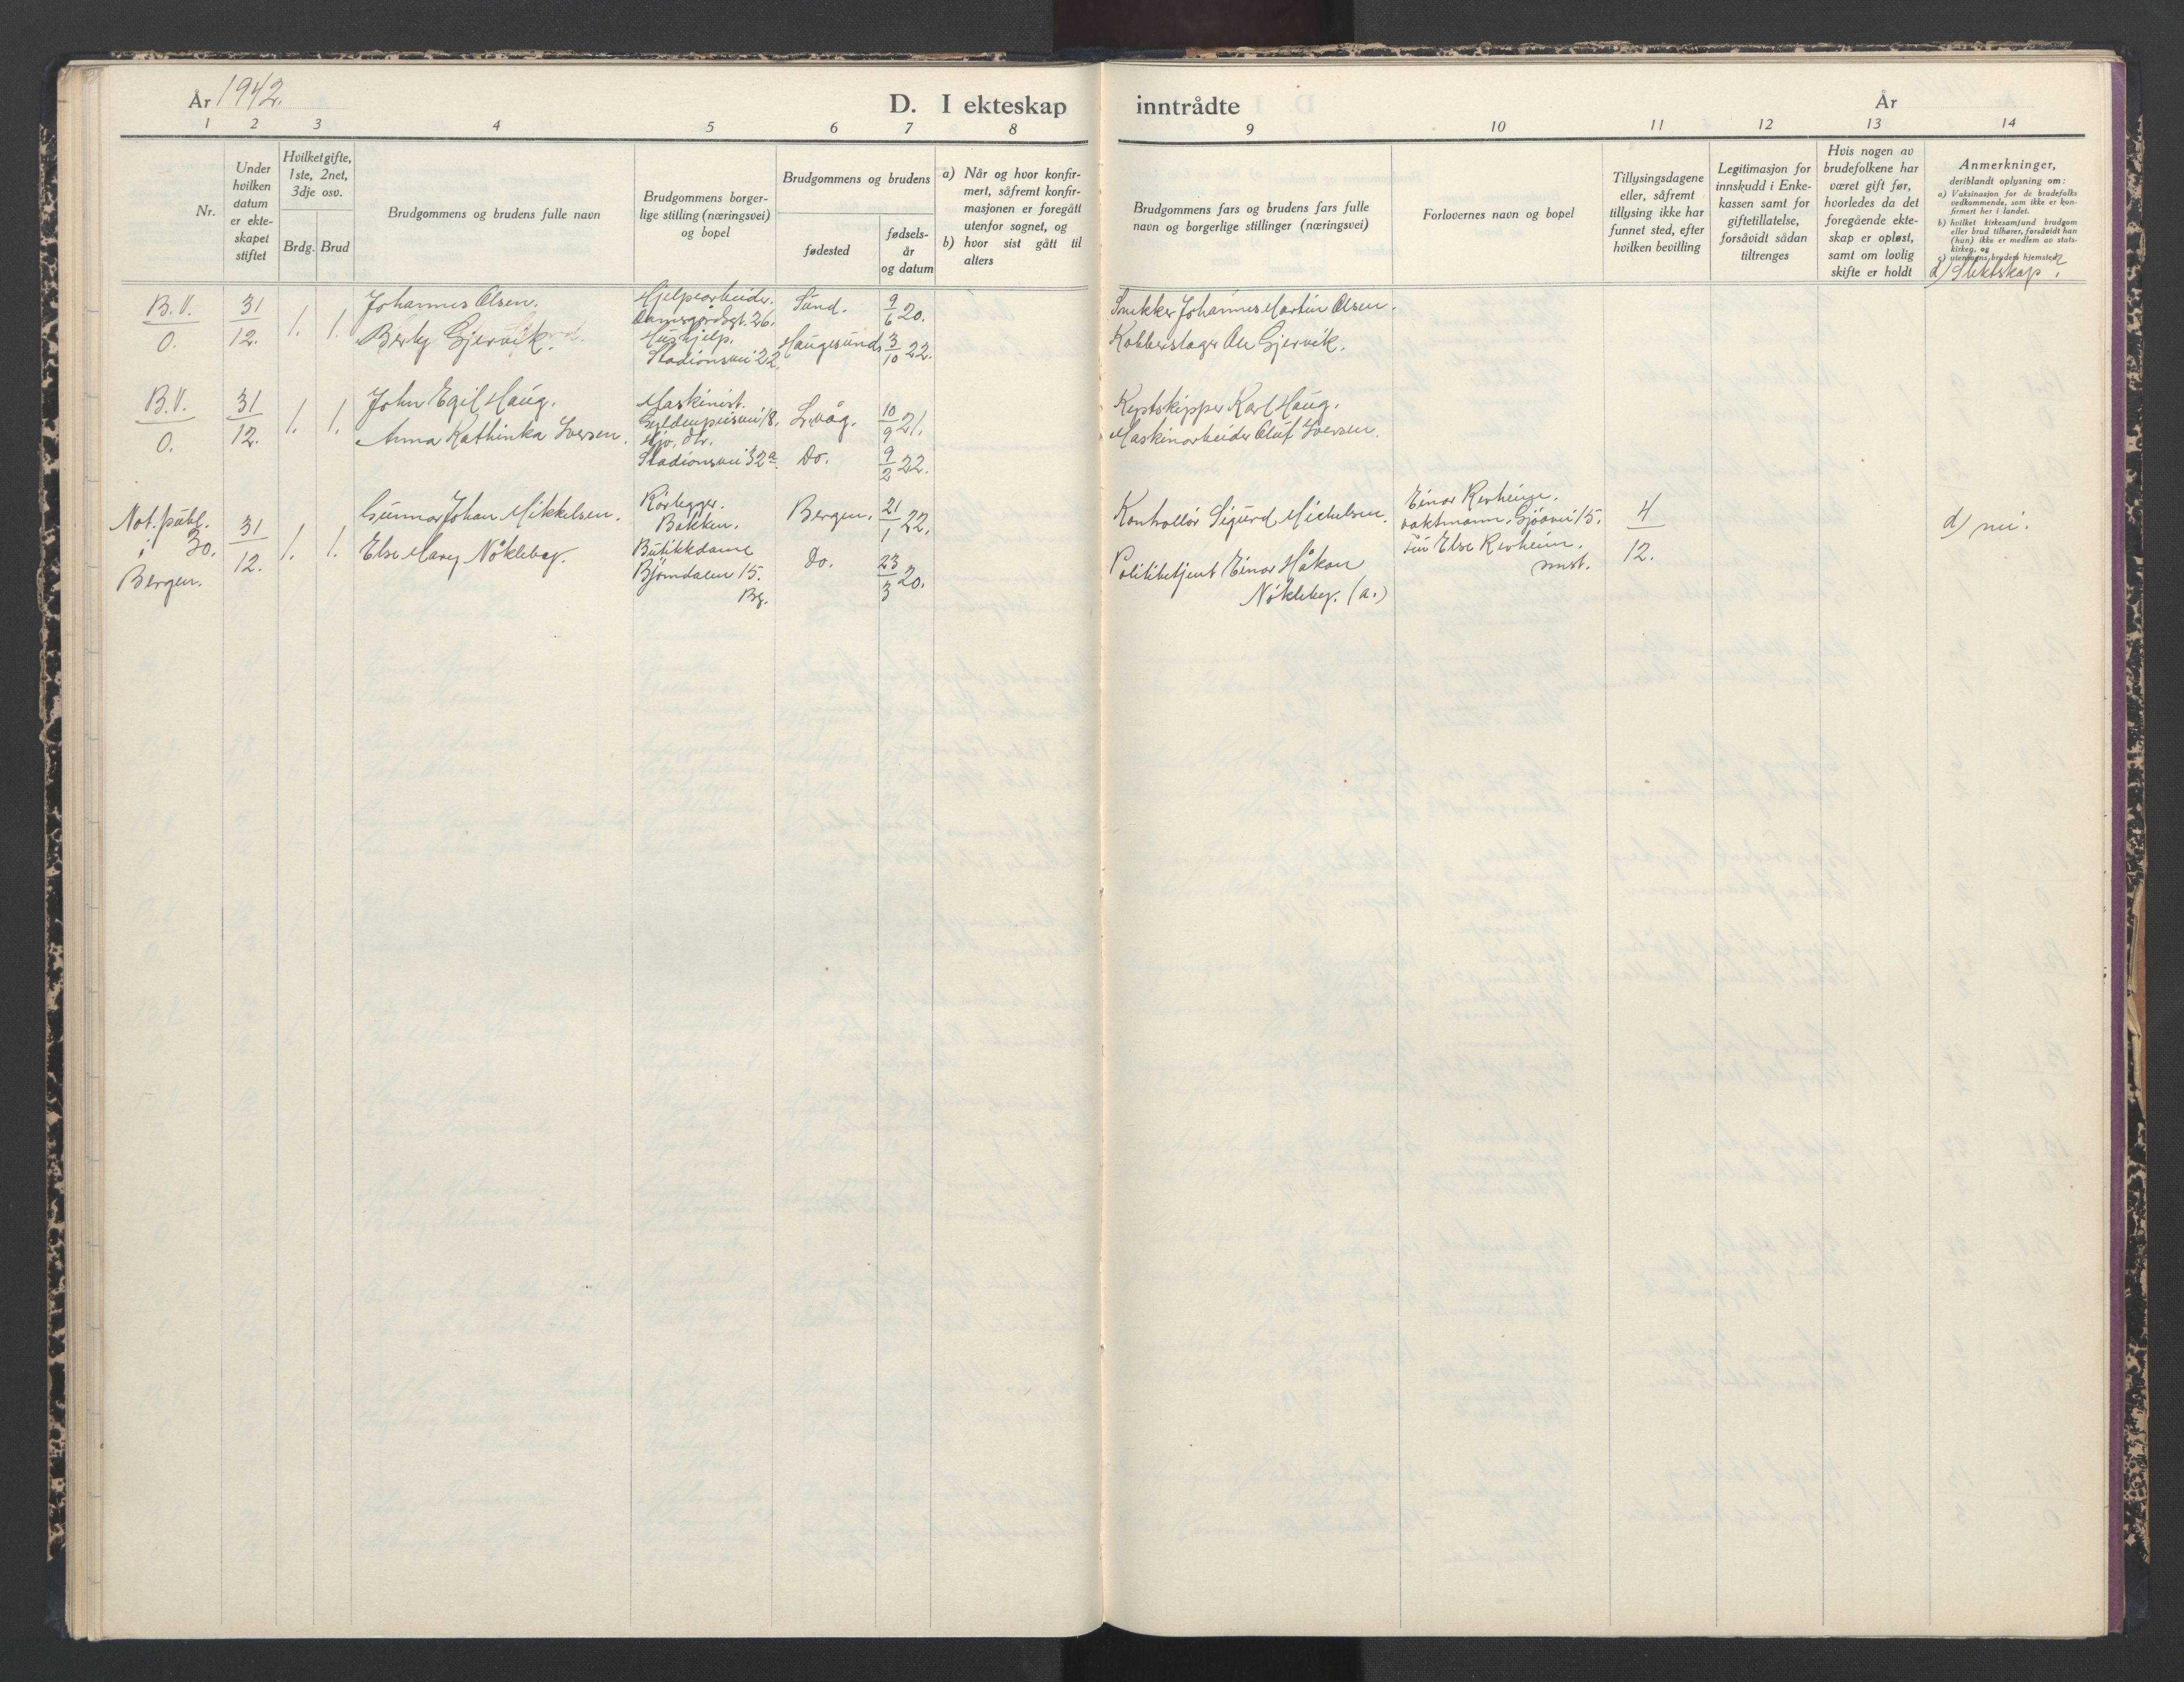 År 1942.
D. I ekteskap inntrådte
År
1 2 3 4 5 6 7 8 9 10 11 12 13 14
Nr.
Under hvilken datum er ekte-skapet stiftet
Hvilket gifte, 1ste, 2net, 3dje osv.
Brdg. Brud
Brudgommens og brudens fulle navn
Brudgommens borger-lige stilling (næringsvei) og bopel
Brudgommens og brudens
fødested
fødsels-år og datum
a) Når og hvor konfir-mert, såfremt konfir-masjonen er foregått utenfor sognet, og
b) hvor sist gått til alters
Brudgommens fars og brudens fars fulle navn og borgerlige stillinger (næringsvei)
Forlovernes navn og bopel
Tillysingsdagene eller, såfremt tillysing ikke har funnet sted, efter hvilken bevilling
Legitimasjon for innskudd i Enke-kassen samt for giftetillatelse, forsåvidt sådan tiltrenges
Hvis nogen av brudefolkene har været gift før, hvorledes da det foregående ekte-skap er opløst, samt om lovlig skifte er holdt
Anmerkninger,
deriblandt oplysning om:
a) Vaksinasjon for de brudefolks vedkommende, som ikke er kon-firmert her i landet.
b) hvilket kirkesamfund brudgom eller brud tilhører, forsåvidt han (hun) ikke er medlem av stats-kirken, og
c) utensogns bruders hjemsted.
d) Slektskap?
B.V.
0.
31
12.
1. 1.
Johannes Olsen.
Berly Gjervik.
Hjelpearbeider.
Damsgårdsgt. 26.
Hushjelp.
Stadionsvei 22.
Sund.
Haugesund.
9
6 20.
3
10 22.
Snekker Johannes Martin Olsen.
Kobberslager Ole Gjervik.
B.V.
0.
31
12.
1. 1.
John Egil Haug.
Anna Kathinka Iversen.
Maskinist.
Gyldenprisvei 18.
Stadionsvei 32a.
L.våg.
Do.
10
9 21.
9
2 22.
Kystskipper Karl Haug.
Maskinarbeider Oluf Iversen.
Not. publ.
i 30.
Bergen.
31
12.
1. 1.
Gunnar Johan Mikkelsen.
Else Mary Nökleby.
Rörlegger.
Bakken.
Butikkdame
Björndalen 15.
Bg.
Bergen.
Do.
21
1 22.
23
3 20.
Kontrollör Sigurd Michelsen.
Politibetjent Einar Håkon
Nökleby. (a.)
Einar Revheim.
vaktmann. Gjövei 15.
Fru Else Revheim.
smst.
4
12.
d) nei.